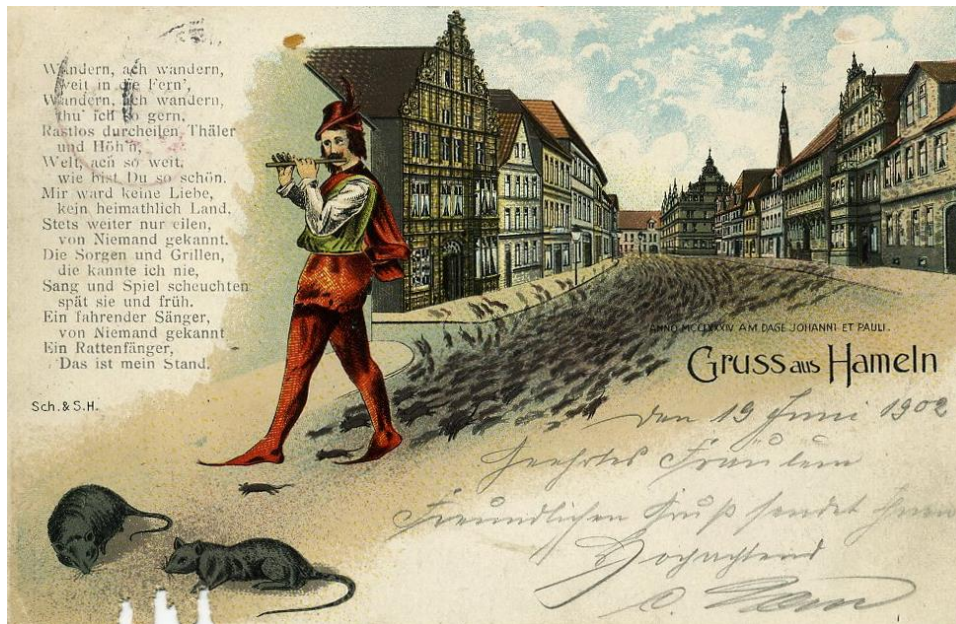 Wandern, ach wandern,
weit in die Fern',
Wandern, ach wandern,
thu' ich so gern.
Rastlos durcheilen Thäler
und Höh'n,
Welt, ach so weit,
wie bist Du so schön.
Mir ward keine Liebe,
kein heimathlich Land.
Stets weiter nur eilen,
von Niemand gekannt.
Die Sorgen und Grillen,
die kannte ich nie,
Sang und Spiel scheuchten
spät sie und früh.
Ein fahrender Sänger,
von Niemand gekannt
Ein Rattenfänger,
Das ist mein Stand.
Sch. & S.H.
ANNO MCCLXXXIV AM DAGE JOHANNI ET PAULI.
Gruss aus Hameln
den 19 Juni 1902
Geehrtes Fräulein
Freundlichen Gruß sendet Ihnen
Hochachtend